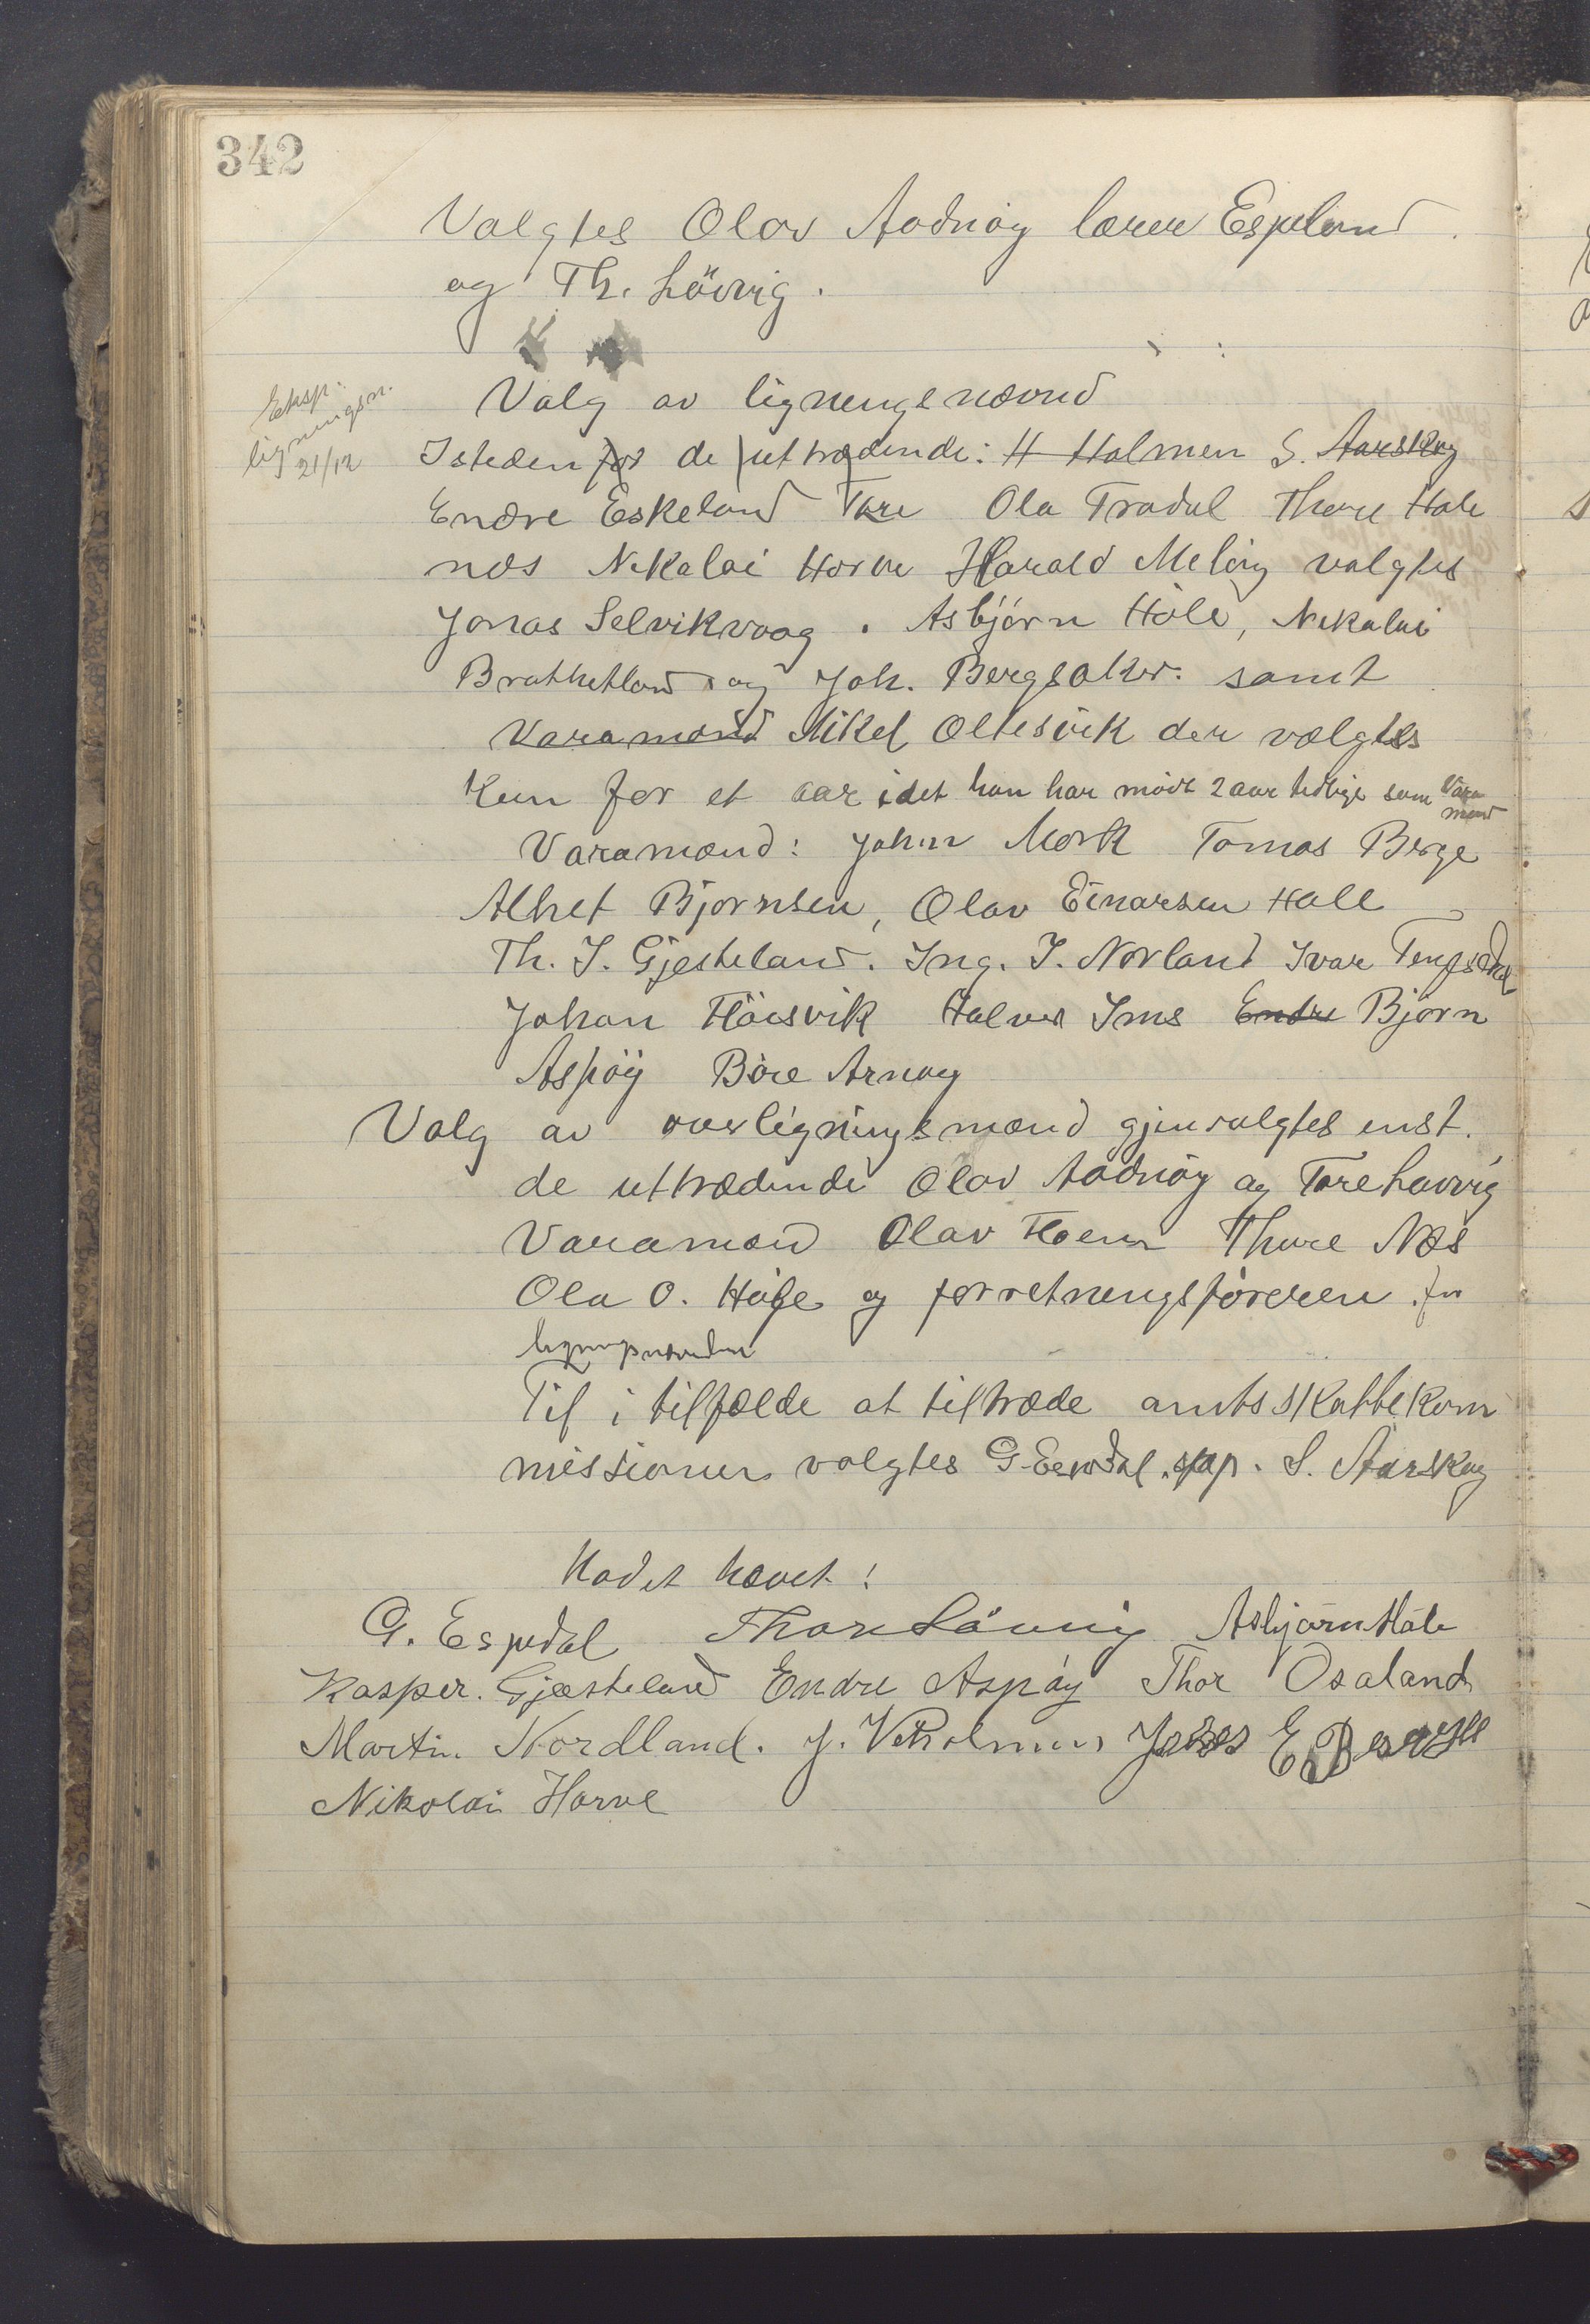 342
Valgtes Olav Aadnöy lærer Espeland
og Th. Lövvig.
Eksp.
ligningsn.
21/12
Valg av ligningsnævnd
Isteden for de uttrædende: H Holmen S. Aarskog
Endre Eskeland Tore Ola Tradal Thore Hole
næs Nikalai Horve Harald Melöy valgtes
Jonas Selvikvaag. Asbjörn Höle, Nikalai
Brattetland og Joh. Bergsaker. samt
Varamænd Mikel Oltesvik der vælgtes
kun for et aar idet han har mödt 2 aar tidlige som vara
mænd
Varamænd: John Mork Tomas Berge
Alhet Bjornsen, Olav Einarsen Hall
Th. J. Gjesteland. Ing. J. Norland Ivar Tengsdal
Johan Flöisvik Halvor Ims Endre Björn
Aspöy Böre Arnöy
Valg av overligningsmænd gjenvalgtes enst.
de uttrædende Olav Aadnöy og Tore Lövvig
Varamænd Olav Thore Næs
Ola O. Höle og forretningsföreren for
ligningsnævnden
Til i tilfælde at tiltræde amtsskattekom
missionen valgtes G. Espedal. sup. S. Aarskog
Mödet hævet!
G. Espedal Thore Lövvig Asbjörn Höle
Kasper. Gjesteland Endre Aspöy Thor Osaland
Martin Nordland. J. Vetrholmen E Berge
Nikolai Horve